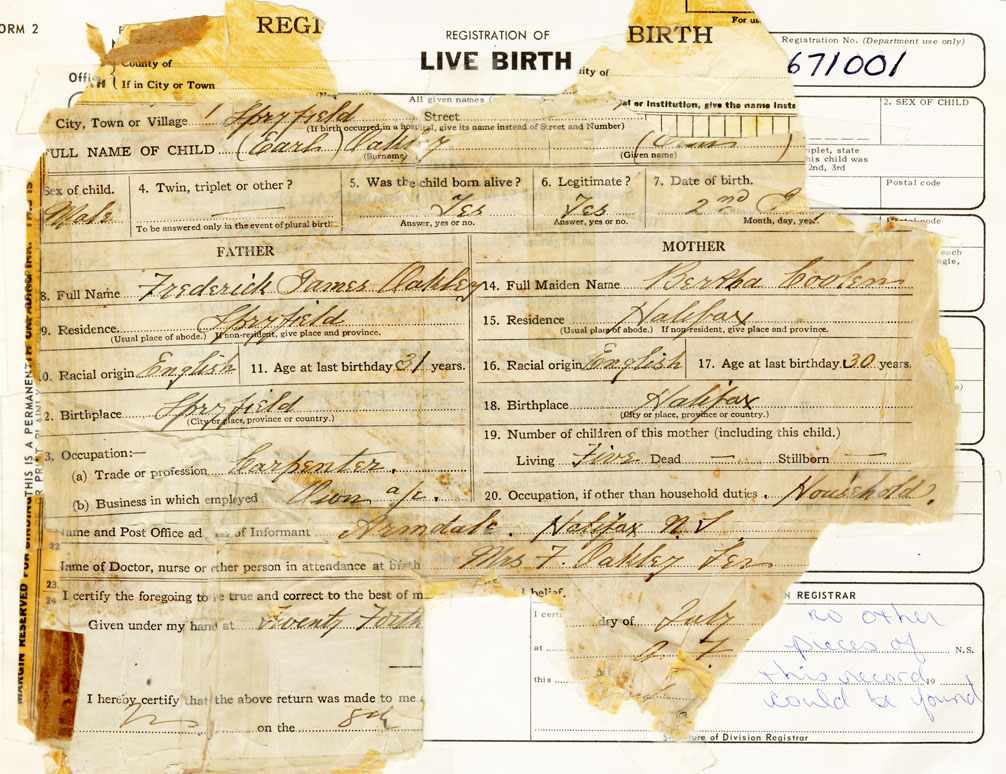 ORM 2
REGI
REGISTRATION OF
LIVE BIRTH
BIRTH
For us
Registration No. (Department use only)
671001
County of
ity of
Offi
If in City or Town
All given names
al or Institution, give the name inste
2. SEX OF CHILD
City, Town or Village Spryfield Street
(If birth occurred in a hospital, give its name instead of Street and Number)
FULL NAME OF CHILD (Earl) Oakley
(Surname) (Given name)
triplet, state
his child was
2nd, 3rd
Postal code
Sex of child. 4. Twin, triplet or other? 5. Was the child born alive? 6. Legitimate? 7. Date of birth.
Male — Yes Yes 2nd
To be answered only in the event of plural birth Answer, yes or no. Answer, yes or no. Month, day, year.
Postal code
FATHER MOTHER
each
ngle,
8. Full Name Frederick James Oakley 14. Full Maiden Name Bertha
9. Residence Spryfield 15. Residence Halifax
(Usual place of abode.) If non-resident, give place and province. (Usual place of abode.) If non-resident, give place and province.
0. Racial origin English 11. Age at last birthday 31 years. 16. Racial origin English 17. Age at last birthday 30 years.
2. Birthplace Spryfield 18. Birthplace Halifax
(City or place, province or country.) (City or place, province or country.)
19. Number of children of this mother (including this child.)
3. Occupation:—
(a) Trade or profession Carpenter. Living Five Dead — Stillborn —
(b) Business in which employed Own a/c. 20. Occupation, if other than household duties. Household.
Name and Post Office ad of Informant Armdale. Halifax N.S.
22
Mrs F. Oakley
Name of Doctor, nurse or other person in attendance at birth
23.
24 I certify the foregoing to be true and correct to the best of m belief.
N REGISTRAR
I cert
Given under my hand at Twenty Forth day of July
No other
pieces of
this record
could be found
at N.S.
this 19
I hereby certify that the above return was made to me
on the 8th
Signature of Division Registrar
MARGIN RESERVED FOR BINDING THIS IS A PERMANENT